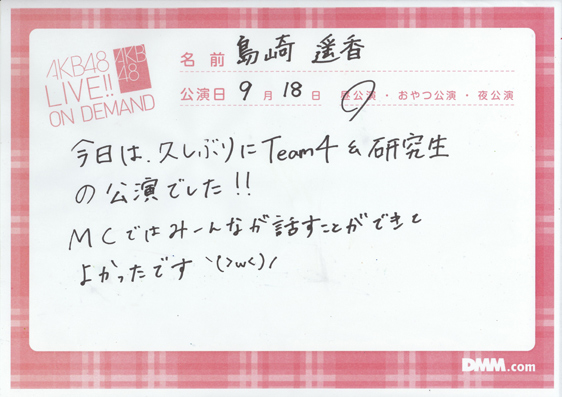 AKB48
LIVE!!
ON DEMAND
AKB
48
名前 島崎 遥香
公演日 9月18日 昼公演・おやつ公演・夜公演
今日は、久しぶりにTeam4&研究生
の公演でした!!
MCではみーんなが話すことができて
よかったです ヽ(>w<)ノ
DMM.com